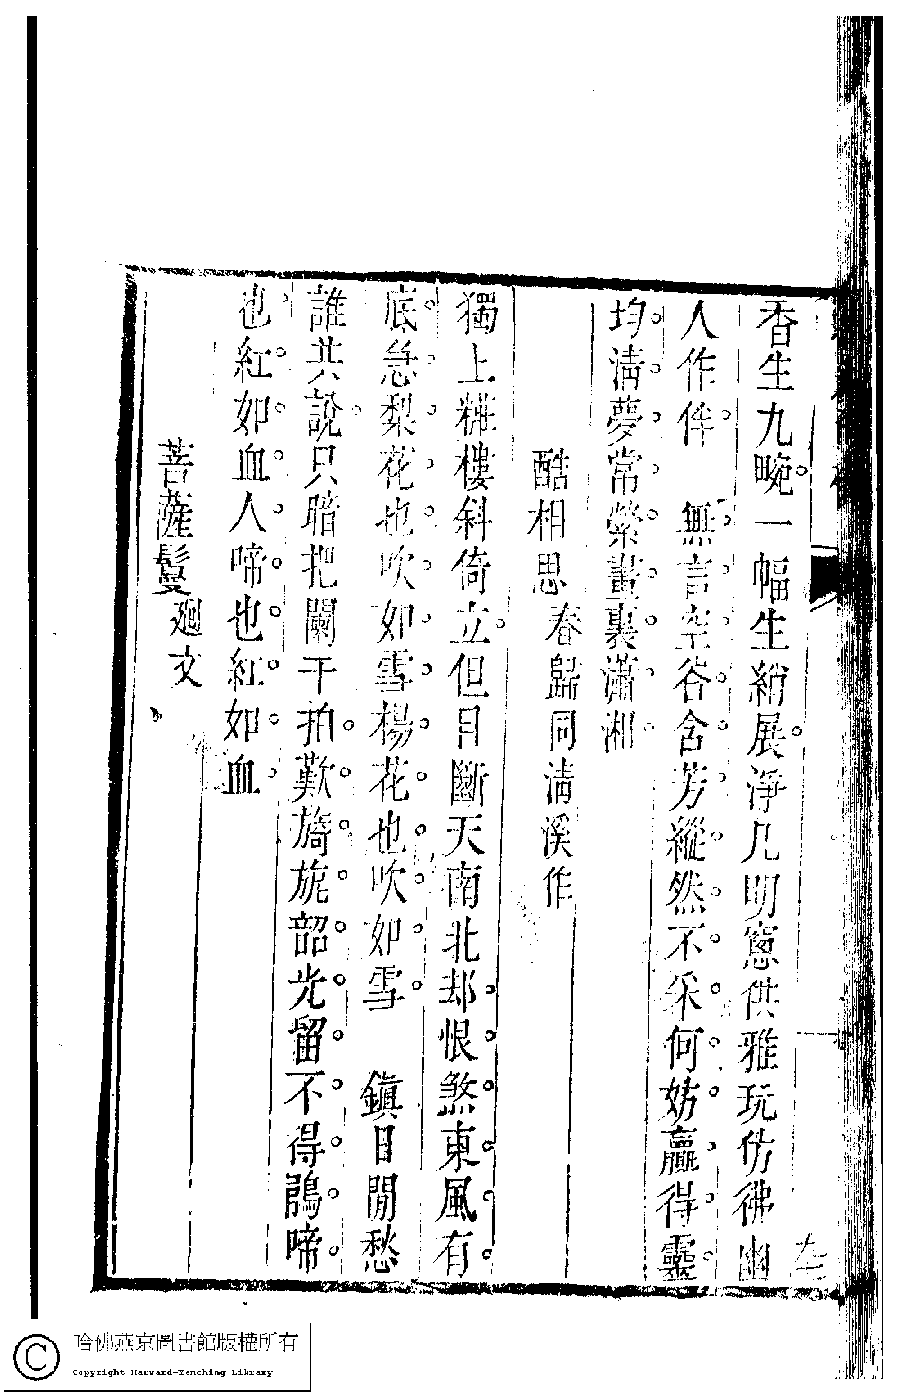 香生九畹一幅生綃展淨几明窻供雅玩仿彿幽
人作伴　無言空谷含芳縱然不采何妨贏得靈
均淸夢常縈畫裏瀟湘
酷相思 春歸同淸溪作
獨上糚樓斜倚立但目斷天南北却恨煞東風有
底急梨花也吹如雪楊花也吹如雪　鎭日閒愁
誰共說只暗把闌干拍歎旖旎韶光留不得鵑啼
也紅如血人啼也紅如血
菩薩鬘 廻文
哈佛燕京圖書館版權所有
Copyright Harvard-Yenching Library